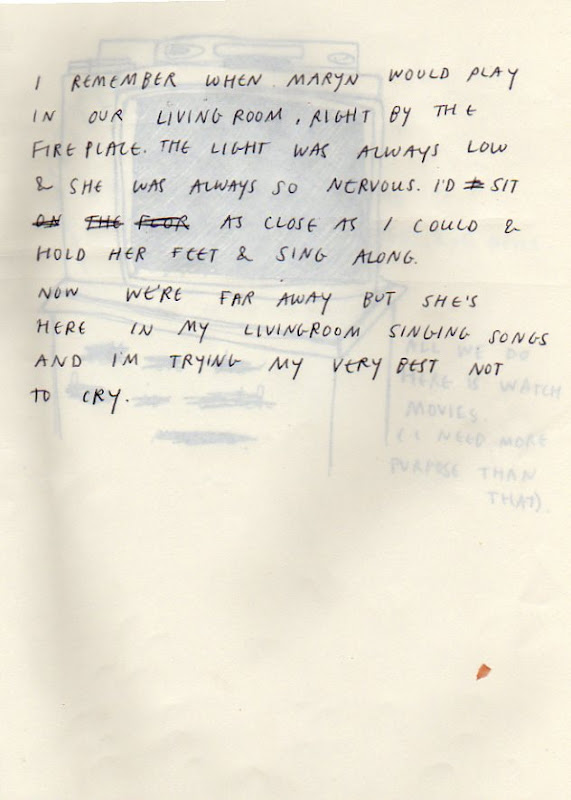 I REMEMBER WHEN MARYN WOULD PLAY
IN OUR LIVING ROOM, RIGHT BY THE
FIRE PLACE. THE LIGHT WAS ALWAYS LOW
& SHE WAS ALWAYS SO NERVOUS. I'D SIT
ON THE FLOOR AS CLOSE AS I COULD &
HOLD HER FEET & SING ALONG.
NOW WE'RE FAR AWAY BUT SHE'S
HERE IN MY LIVINGROOM SINGING SONGS
AND I'M TRYING MY VERY BEST NOT
TO CRY.
ALL WE DO
HERE IS WATCH
MOVIES.
(I NEED MORE
PURPOSE THAN
THAT).